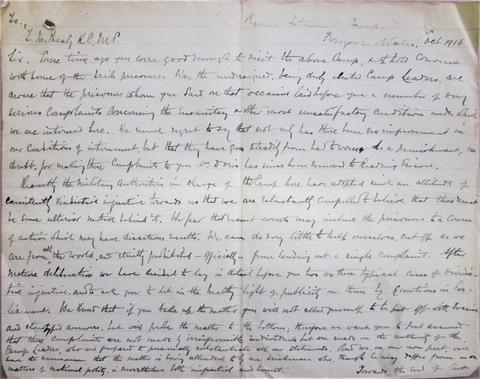 To:-
T. M. Healy K.C. M.P.
Internment Camp.
Frongoch. Wales. Oct 1916
Sir. Some time ago you were good enough to visit the above Camp, & to converse
with some of the Irish prisoners. We, the undersigned, being duly elected Camp Leaders, are
aware that the prisoners whom you saw on that occasion laid before you a number of very
serious complaints concerning the insanitary & other most unsatisfactory conditions under which
we are interned here. We much regret to say that not only has there been no improvement in
our conditions of internment but that they have gone steadily from bad to worse. As a punishment, no
doubt, for making these complaints to you Mr. has since been removed to Reading Prison.
Recently the Military Authorities in charge of the Camp here have adopted such an attitude of
consistently vindictive injustice towards us that we are reluctantly compelled to believe that there must
be some ulterior motive behind it. We fear that events may incline the prisoners to a course
of action which may have disastrous results. We can do very little to help ourselves, cut off as we
are from all the world, and strictly prohibited - officially - from sending out a single complaint. After
mature deliberation we have decided to lay in detail before you two or three typical cases of vindic-
tive injustice, and to ask you to let in the healthy light of publicity on them by questions in Par-
liament. We know that if you take up the matter you will not allow yourself to be put off with evasive
and stereotyped answers, but will probe the matter to the bottom, therefore we want you to feel assured
that these complaints are not made by irresponsible individuals, but are made on the authority of the
Camp Leaders, who are prepared to personally substantiate all our statements, and we on our own part
to announce that the matter is being attended to by an Irishman who, though he may differ from us on
matters of national policy, is nevertheless both impartial and honest.
Towards the end of last